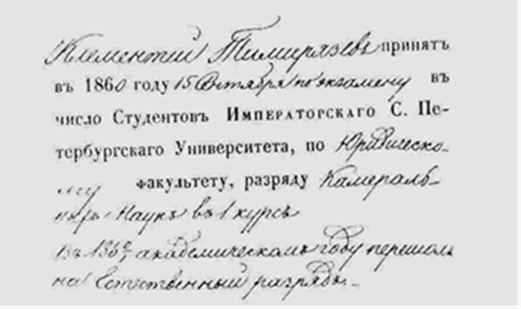 Климентий Тимирязевъ принятъ
въ 1860 году 15 Октября по экзамену въ
число Студентовъ Императорскаго С. Пе-
тербургскаго Университета, по Юридическо-
му факультету, разряду Камераль-
ныхъ Наукъ въ 1 курсъ
Въ академическомъ году перешолъ
на Естественный разрядъ.